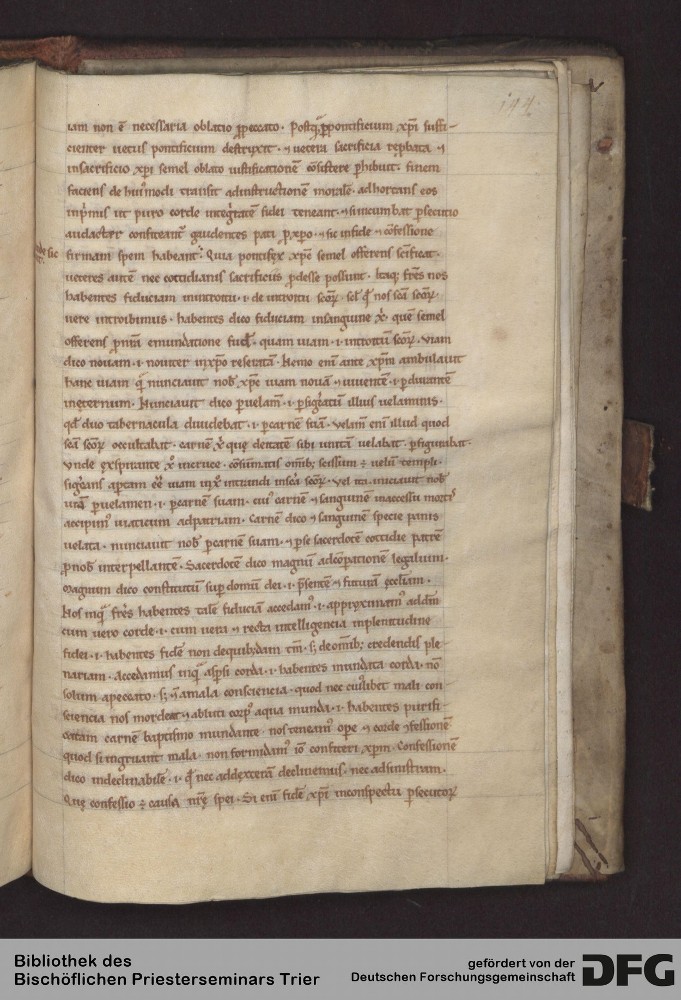 144.
iam non ē necessaria oblatio ꝓpeccato. Postq̄ꝑpontificium xp̄i suffi-
cienter uetus pontificium destruxit. ⁊ uetera sacrificia reꝓbata ⁊
insacrificio xp̄i semel oblato iustificationē cōsistere ꝓhibuit. finem
faciens de huiꝰmodi transit adinstructionē moralē. adhortans eos
inpͥmis ut puro corde integͥtatē fidei teneant. ⁊ si incumbat ꝑsecutio
audacter confiteant᷑ gaudentes pati ꝓ xp̄o. ⁊ sic infide ⁊ cōfessione
firmam spem habeant. Quia pontifex xp̄c semel offerens sc̄ificat.
ueteres autē nec cottidianis sacrificiis ꝓdesse possunt. Itaq; fr̄es nos
habentes fiduciam inintroitu .i. de introitu sc̄oꝝ. scl̓ q̄ nos sc̄a sc̄oꝝ
uere introibimus. habentes dico fiduciam insanguine x̄. quē semel
offerens ꝓ nr̄a emundatione fudit. quam uiam .i. introitū sc̄oꝝ. Viam
dico nouam .i. nouiter inxp̄o reseratā. Nemo eni ante xp̄m ambulauit
hanc uiam q̄ nunciauit nob̄ xp̄c uiam nouā ⁊ uiuentē .i. ꝑdurantē
ineternum. Nunciauit dico ꝑuelam̄ .i. ꝑsigͣtū illius uelaminis.
qd̄ duo tabernacula diuidebat .i. ꝑcarnē suā. Velam̄ eni illud quod
sc̄a sc̄oꝝ occultabat. carnē x̄ quę deitatē sibi unitā uelabat. ꝑfigurabat.
Vnde exspirante x̄ incruce. cōsūmatis om̄ib; scissum ē uelū templi.
sigͥficans aꝑtam eē uiam in x̄ intrandi insc̄a sc̄oꝝ. Vel ita. iniciauit nob̄
uiā ꝑuelamen .i. ꝑcarnē suam. cuiꝰ carnē ⁊ sanguinē inaccessu mortis
accipimꝰ uiaticum adpatriam. Carnē dico ⁊ sanguinē specie panis
uelata. nunciauit nob̄ ꝑcarnē suam. ⁊ ꝑse sacerdotē cottidie patrē
ꝓnob̄ interpellantē. Sacerdotē dico magnū adcōparationē legalium.
Magnum dico constitutū suꝑ domū dei .i. p̄sentē ⁊ futurā ęccl̄iam.
Nos inq̄ fr̄es habentes talē fiduciā accedamꝰ .i. appropinquemꝰ addm̄
cum uero corde .i. cum uera ⁊ recta intelligencia inplenitudine
fidei .i. habentes fidē non dequib;dam tm̄. s; deom̄ib; credendis ple
nariam. Accedamus inq̄ asp̄si corda .i. habentes mundata corda. nō
solum apeccato. s; ⁊ amala consciencia. quod nec cuiꝰlibet mali con
sciencia nos mordeat ⁊ abluti corpꝰ aqua munda .i. habentes purifi-
catam carnē baptismo mundante. nos teneamꝰ ope ⁊ corde ꝯfessionē
quod si ingruant mala. non formidamꝰ iō confiteri xp̄m. Confessionē
dico indeclinabilē .i. q̄ nec addexterā declinemus. nec adsinistram.
Quę confessio ē causa nr̄ę spei. Si eni fidē xp̄i inconspectu ꝑsecutoꝝ
Bibliothek des
Bischöflichen Priesterseminars Trier
gefördert von der
Deutschen Forschungsgemeinschaft
DFG